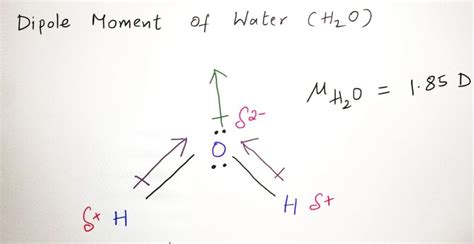 Dipole Moment of Water (H₂O)
μH₂O = 1.85 D
δ2-
O
δ+ H
H δ+